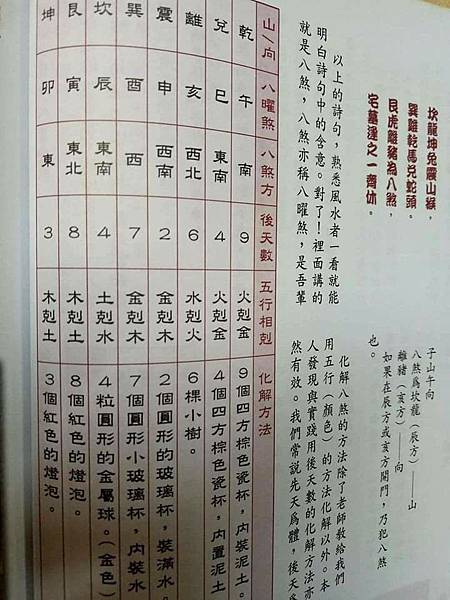 坎龍坤兔震山猴，
巽雞乾馬兌蛇頭。
艮虎離豬為八煞，
宅墓逢之一齊休。
以上的詩句，熟悉風水者一看就能
明白詩句中的含意。對了！裡面講的
就是八煞，八煞亦稱八曜煞，是吾輩
子山午向
八煞爲坎龍（辰方）——山
離豬（亥方）——向
如果在辰方或亥方開門，乃犯八煞
也。
化解八煞的方法除了老師教給我們
用五行（顏色）的方法化解以外。本
人發現與實踐用後天數的化解方法亦
然有效。我們常說先天爲體，後天
山／向 八曜煞 八煞方 後天數 五行相剋 化解方法
乾 午 南 9 火剋金 9個四方棕色瓷杯，內裝泥土。
兌 巳 東南 4 火剋金 4個四方棕色瓷杯，內置泥土
離 亥 西北 6 水剋火 6棵小樹。
震 申 西南 2 金剋木 2個圓形的玻璃杯，裝滿水。
巽 酉 西 7 金剋木 7個圓形小玻璃杯，內裝水
坎 辰 東南 4 土剋水 4粒圓形的金屬球。（金色）
艮 寅 東北 8 木剋土 8個紅色的燈泡。
坤 卯 東 3 木剋土 3個紅色的燈泡。